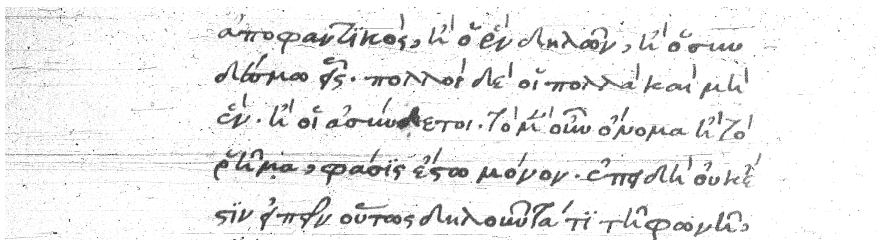 ἀποφαντϊκὸς, ἢ ὁ ἓν δηλῶν, ἢ ὁ συν
δέσμω εἷς· πολλοὶ δὲ οἱ πολλὰ καὶ μὴ
ἕν· ἢ οἱ ἀσύνδετοι· τὸ μὲν οὖν ὄνομα ἢ τὸ
ῥῆμα, φάσϊς ἔστω μόνον· ἐπειδὴ οὐκ ἔ
στϊν εἰπεῖν οὕτως δηλοῦντά τϊ τῆ φωνῆ,